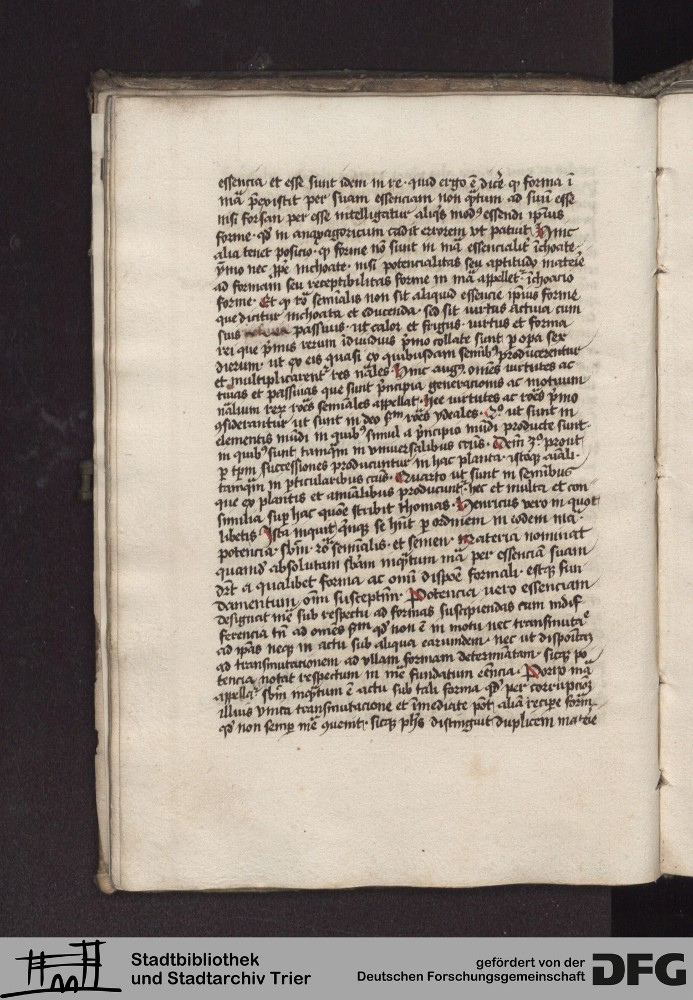 essencia et esse sunt idem in re · quid ergo ē dicē ꝙ forma ī
mā p̄existit per suam essenciam non qͣtum ad suū esse
nisi forsan per esse intelligatur aliqͥs modꝰ essendi ipīus
forme · qd̓ in anaxagoricum cadit errorem vt patuit Hinc
alia tenet posicio · ꝙ forme nō sunt in mā essencialit̓ īchoate ·
ymo nec ꝓpe inchoate · nisi potencialitas seu aptitudo materie
ad formam seu receptibilitas forme in mā appellet̉ · īchoacio
forme · Et ꝙ rō semīalis non sit aliquid essencie ipīus forme
que dicitur inchoata et educenda · sed sit virtus activa cum
suis passiuis · ut calor et frigus · virtus et forma
rei que pͥmis rerum īdiuiduis pͥmo collate sunt ꝑ opa sex
dierum · ut ex eis quasi ex quibusdam semībꝰ producerentur
et multiplicarent̉ res nāles · Hinc augꝰ omēs virtutes ac
tiuas et passiuas que sunt pͥncipia generacionis ac motuum
nālium reꝝ rōes semīales appellat · Hee virtutes ac rōes pͥmo
ɔsiderantur ut sunt in deo fm̄ rōes ydeales · 2ͦ ut sunt in
elementis mūdi in quibꝰ simul a pͥncipio mūdi producte sunt ·
in quibꝰ sunt tamqͣm in vniuersalibus cāis · Dem̄ 3ͦ prout
ꝑ tp̄m successiones producuntur in hac planta · istoqꝫ aīali ·
tamqͣm in ꝑticularibus cāis · Quarto ut sunt in semībus
que ex plantis et aīmalibus producunt̉ · hec et multa et con
similia suꝑ hac quōe scribit thomas · Henricus vero in quot
libetis · Ista inquit qͥnqꝫ se hn̄t ꝑ ordinem in eodem mā ·
potencia · sbm̄ · rō semīalis · et semen · Materia nominat
quand̓ absolutam sbām inqͣtum mā per essenciā suam
dr̄t a qualibet forma ac omī disposē formali · estqꝫ fun
damentum omī susceptīm · Potencia vero essenciam
designat mē sub respectu ad formas suscipiendas cum indif
ferencia tn̄ ad omēs fm̄ qd̓ non ē in motu nec transmutate
ad ipās neqꝫ in actu sub aliqua earumdem · nec ut disposita
ad transmutacionem ad vllam formam determīatam · sicqꝫ po
tencia notat respectum in mē fundatum eēncia · Porro mā
appellat̉ sbm̄ inqͣtum ē actu sub tali forma qd̓ per corrupcōꝫ
illius vnica transmutacione et īmediate pōt aliā reciꝑe formā ·
qd̓ non semꝑ mē ɔuenit · sicqꝫ ph̄s distinguit duplicem materiē
Stadtbibliothek
und Stadtarchiv Trier
gefördert von der
Deutschen Forschungsgemeinschaft
DFG